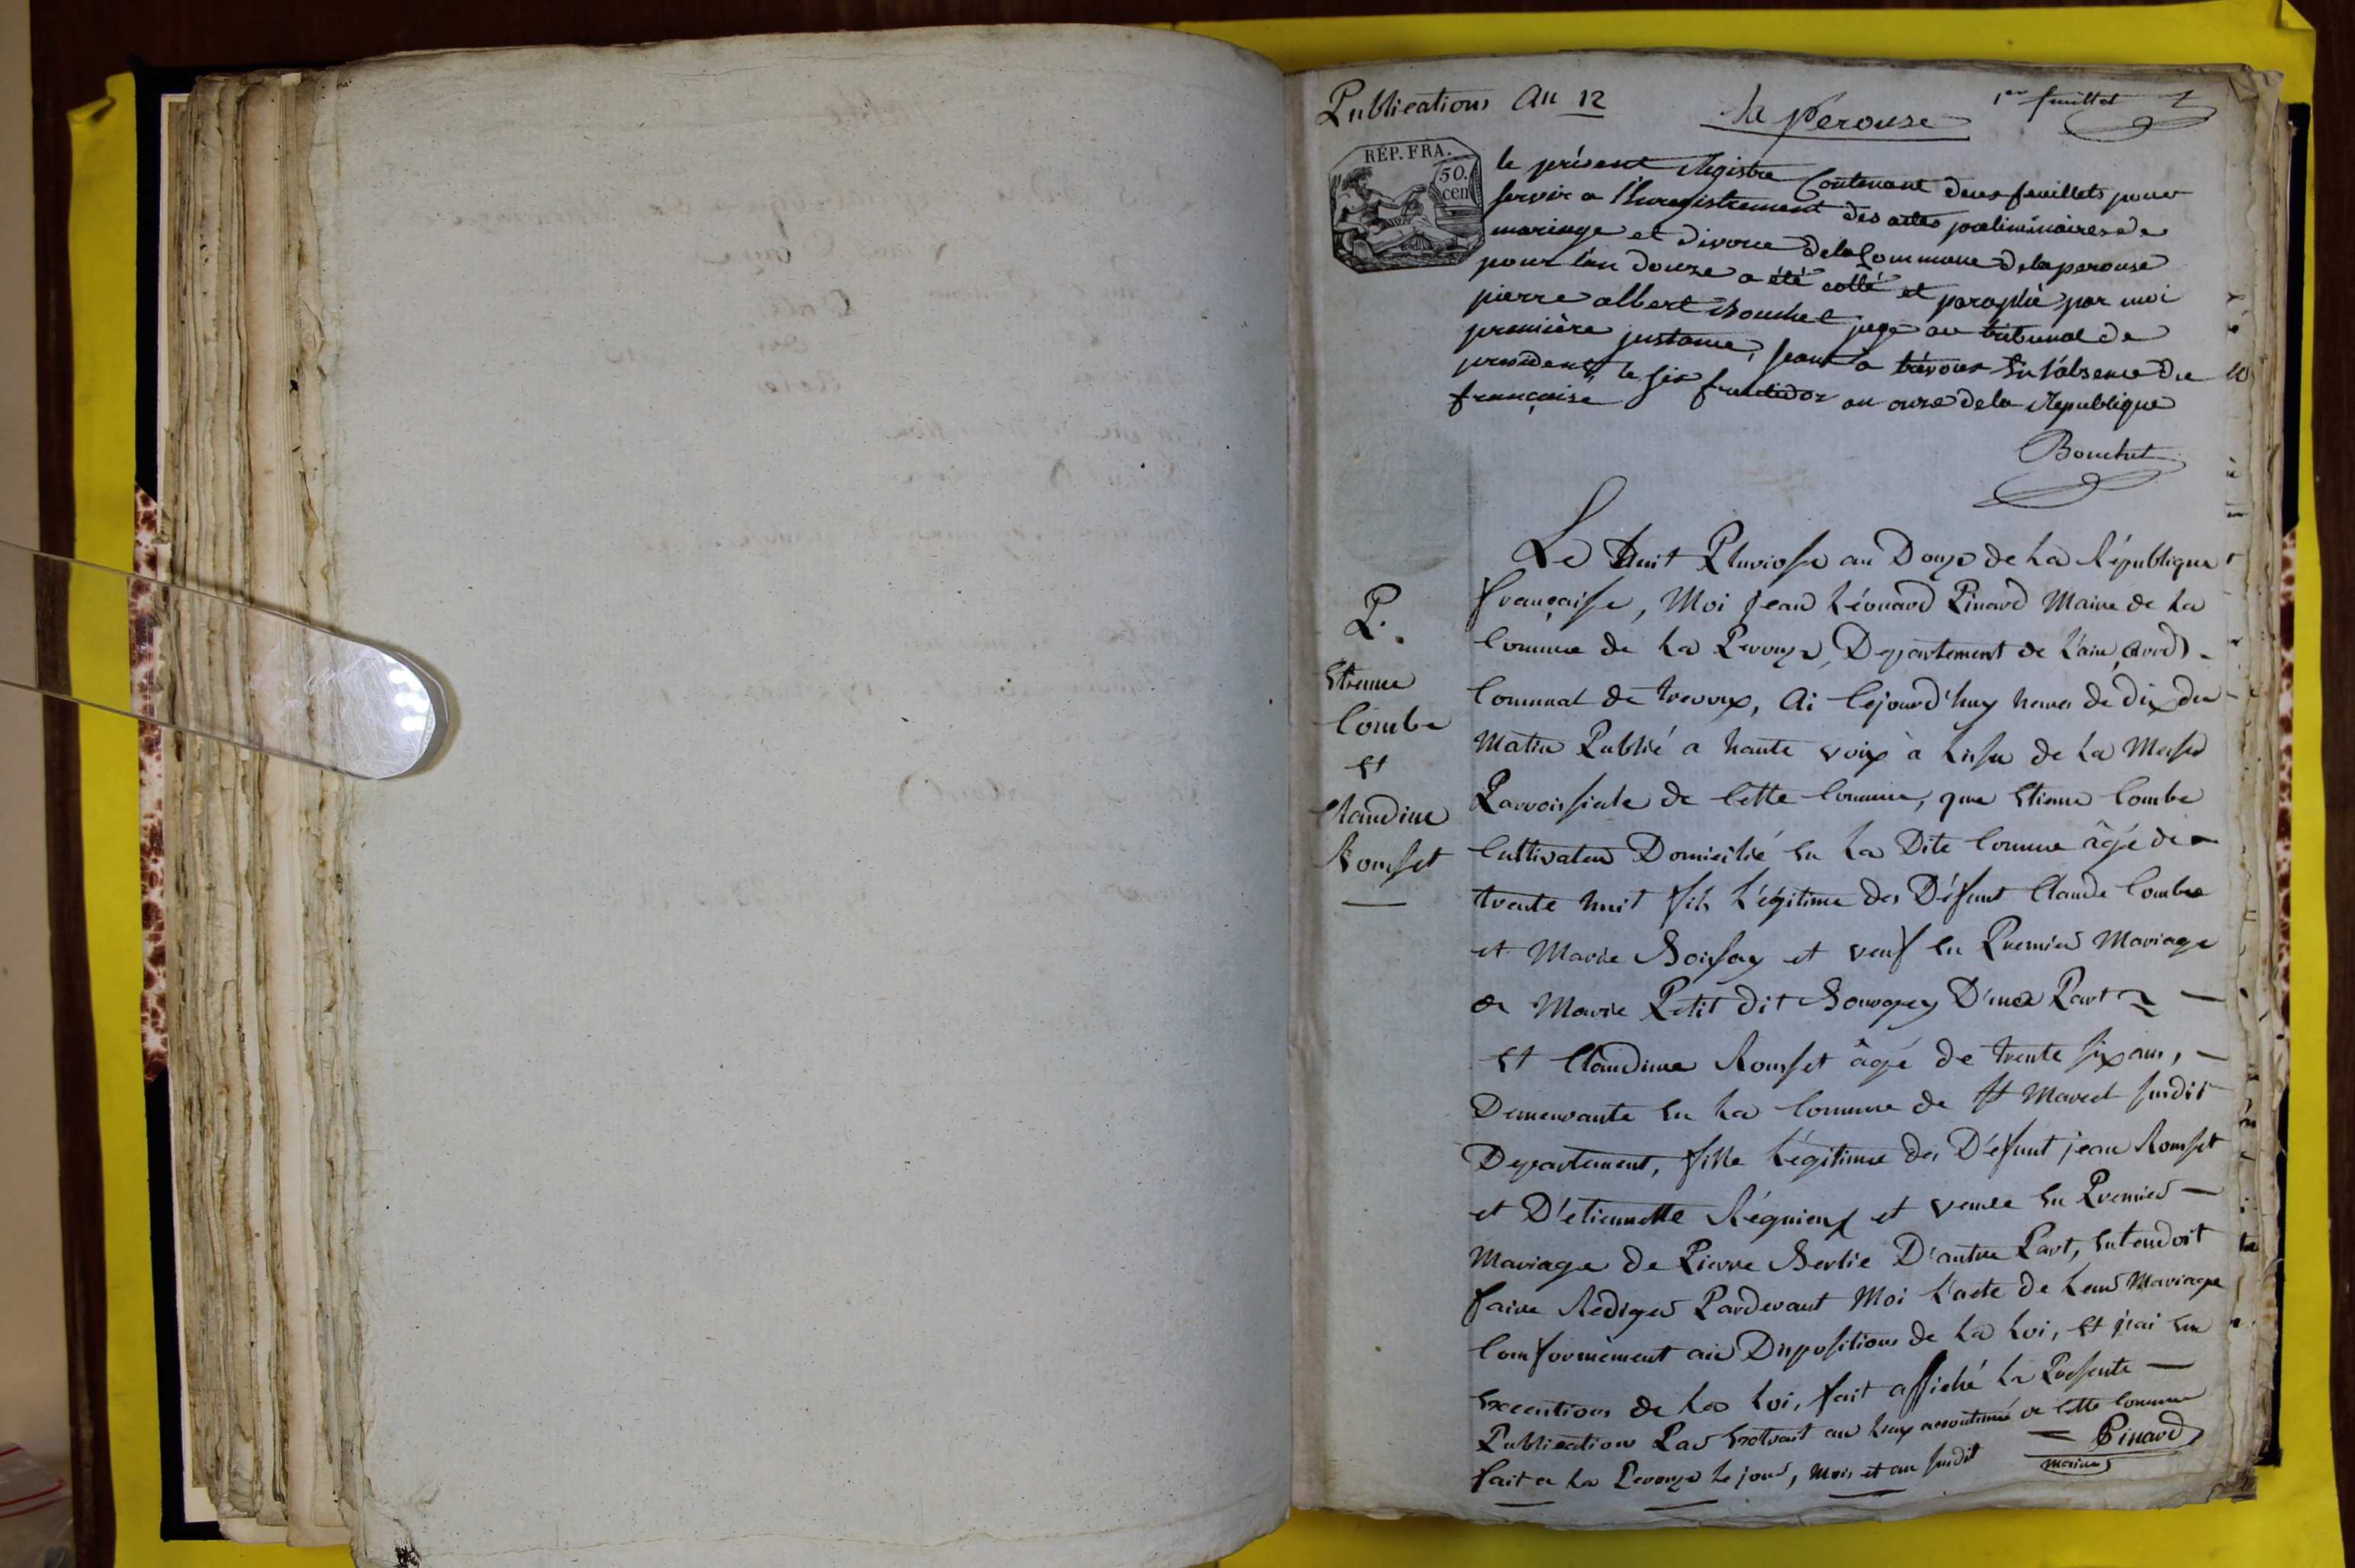 Publications An 12
la pérouse
1er feuillet
RÉP. FRA.
50.
cen
le présent Registre Contenant deux feuillets pour
servir a l'Enregistrement des actes preliminaires de
mariage et divorce dela Commune delaperouse
pour l'an douze a été cotté et paraphé par moi
pierre albert Bouchet juge au tribunal de
première instance, seant a trévoux En l'absence du
president, le six fructidor an onze dela Republique
française
Bouchet
Le huit Pluviosse an Douze de La République
française, Moi Jean Léonard Pinard Maire de La
Comune de La Perouze, Departement de L'ain, Arrd.
Comunal de trevoux, Ai Cejourd'huy heures de dix du
Matin Publié a haute voix à Lissue de La Messe
Parroissiale de Cette Comune, que Etienne Combe
Cultivateur Domicilié En La Dite Comune âgé de
trente huit fils Légitime des Défunt Claude Combe
et Marie et veuf En Premier Mariage
de Marie Petit dit D'une Part
Et Claudine Rousset âgé de trente six ans,
Demeurante En La Comune de St Marcel susdit
Departement, fille Légitime des Défunt jean Rousset
et D'etiennette Régnieux et veuve En Premier
Mariage de Pierre Berlie D'autre Part, Entendoit
faire Rediger Pardevant Moi L'acte de Leur Mariage
Conformément aux Dispositions de La Loi, Et j'ai En
Execution de La Loi, fait affiché La Presente
Publication Par Extrait au Lieux accoutumé de Cette Comune
fait a La Perouze Le jour, Mois et an susdit
Pinard
maire
P.
Etienne
Combe
Et
Claudine
Rousset